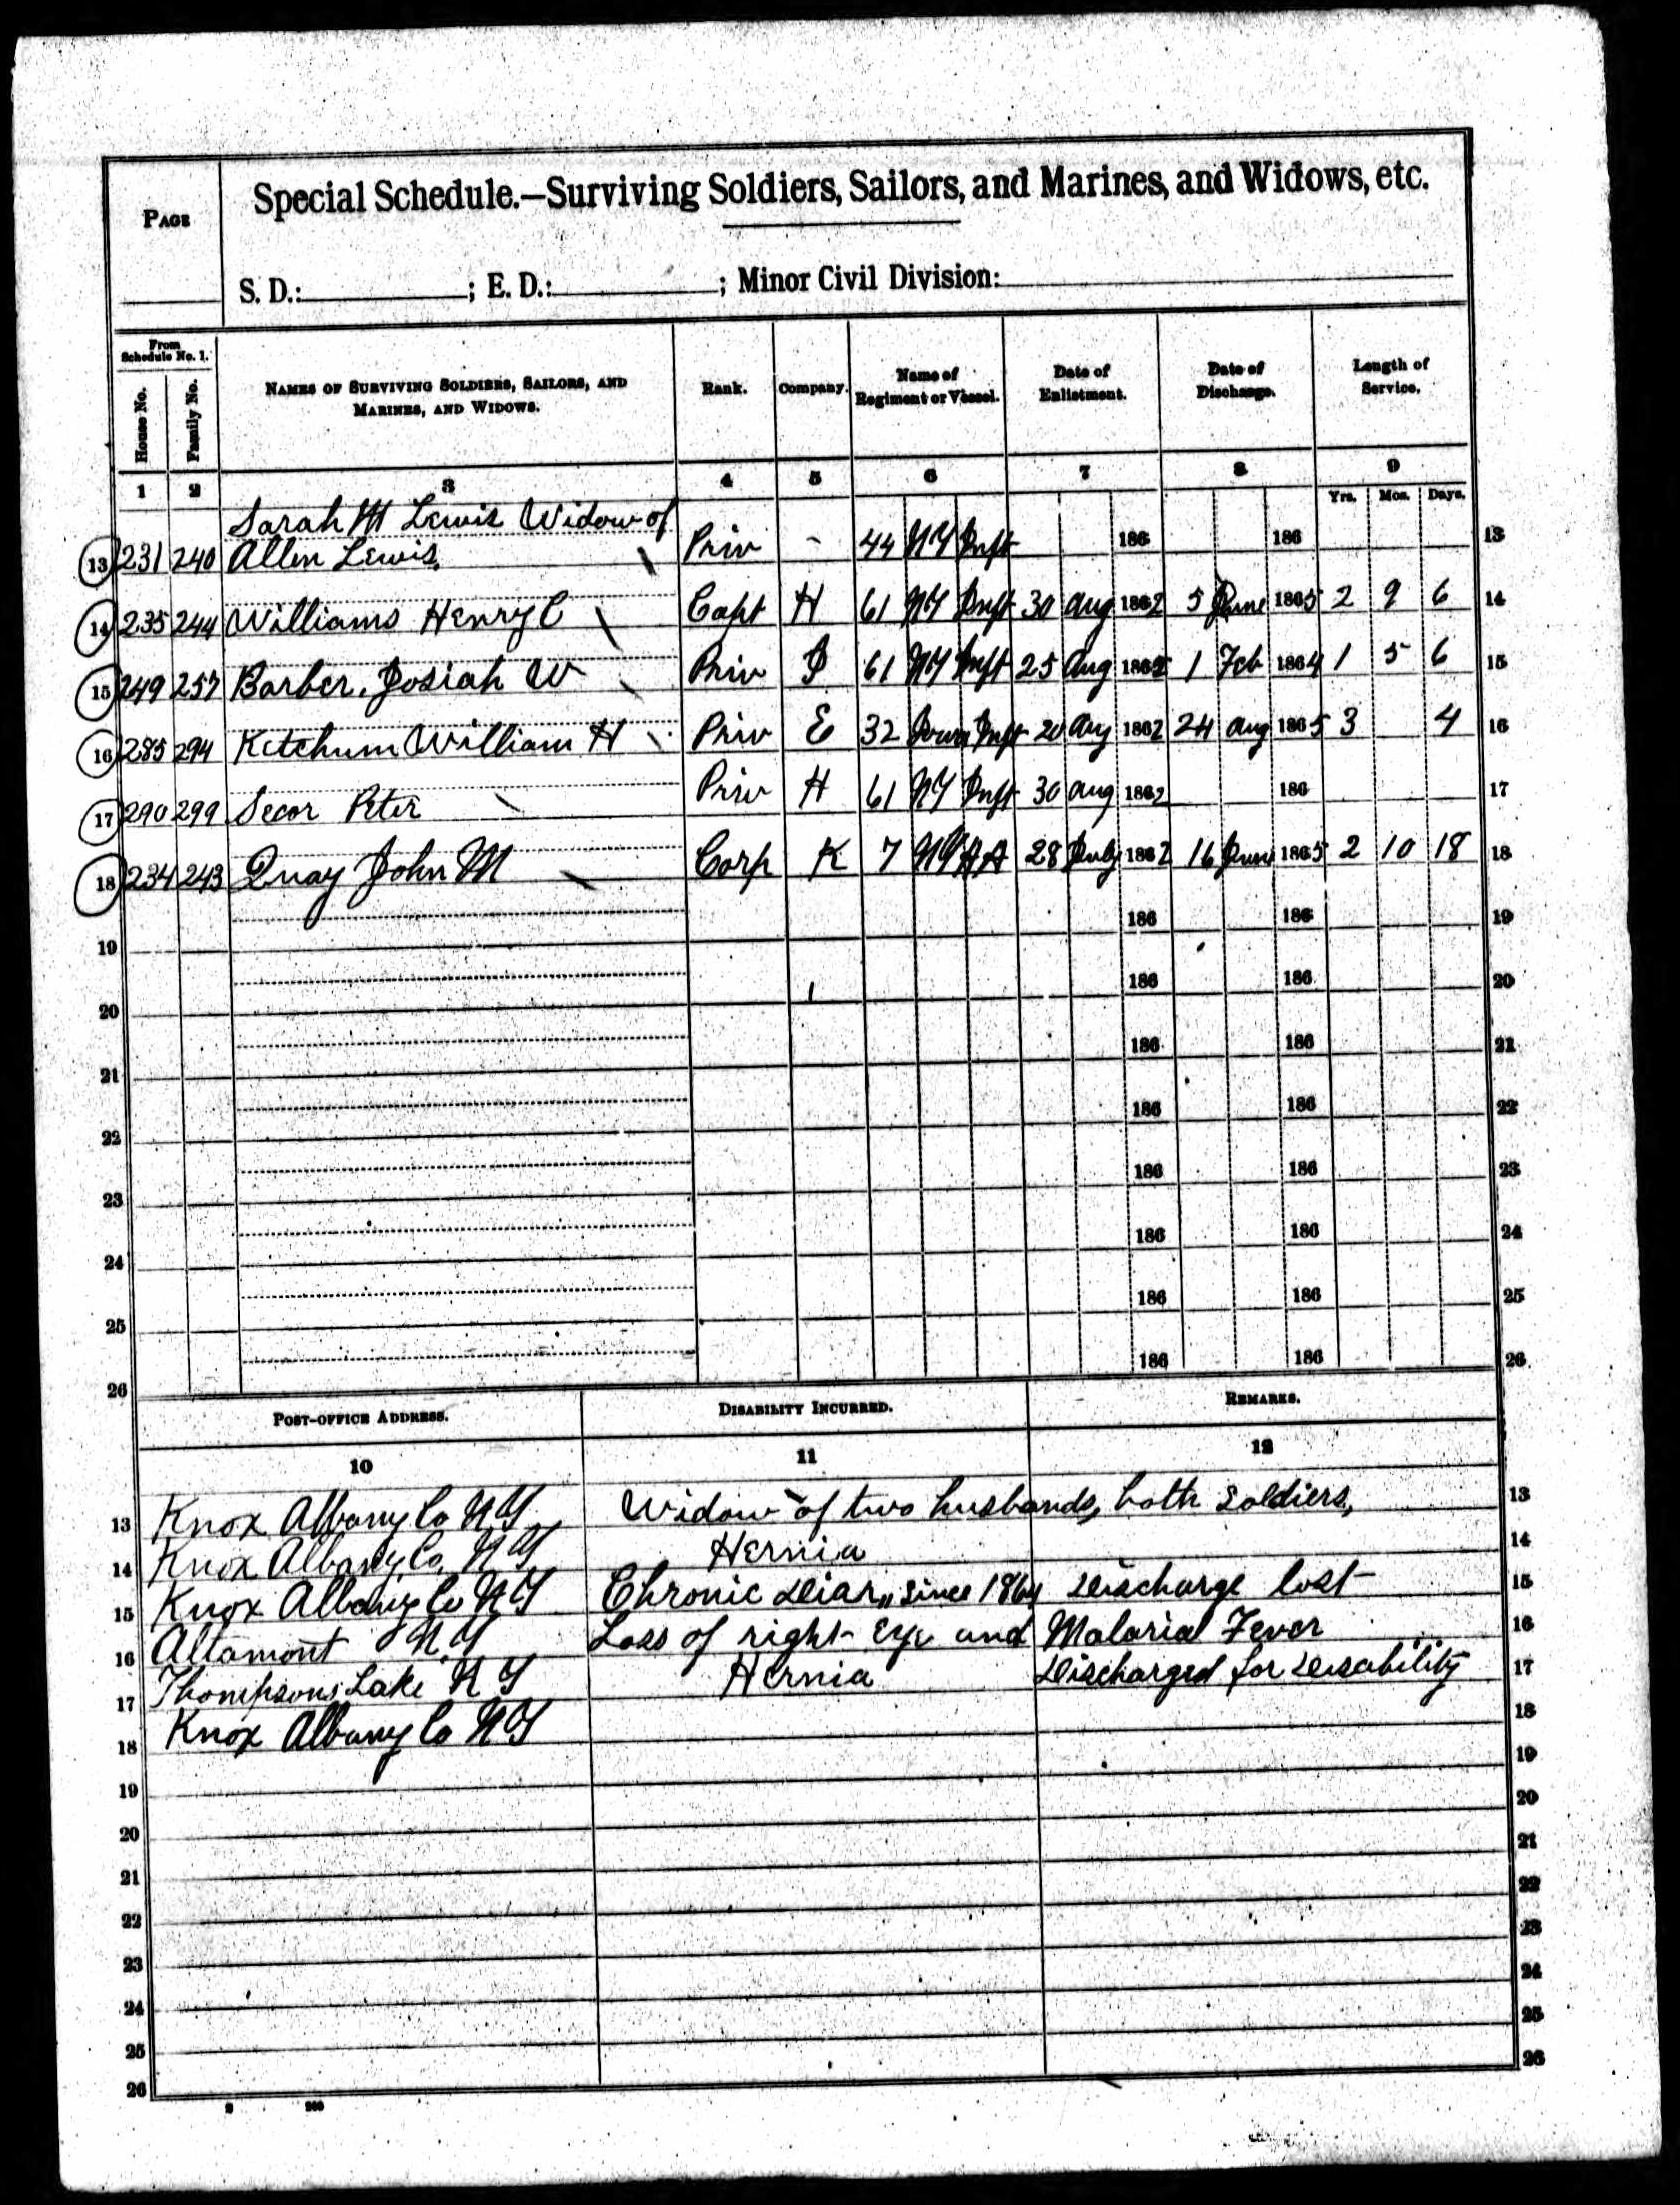 PAGE
Special Schedule.—Surviving Soldiers, Sailors, and Marines, and Widows, etc.
S. D.: ; E. D.: ; Minor Civil Division:
From Schedule No. 1.
House No.
Family No.
NAMES OF SURVIVING SOLDIERS, SAILORS, AND MARINES, AND WIDOWS.
Rank.
Company.
Name of Regiment or Vessel.
Date of Enlistment.
Date of Discharge.
Length of Service.
1 2 3 4 5 6 7 8 9
Yrs. Mos. Days.
Sarah M Lewis Widow of
13 231 240 Allen Lewis Priv - 44 NY Inft 186 186 13
14 235 244 Williams Henry C Capt H 61 NY Inft 30 Aug 1862 5 June 1865 2 9 6 14
15 249 257 Barber, Josiah W Priv I 61 NY Inft 25 Aug 1862 1 Feb 1864 1 5 6 15
16 285 294 Ketchum William H Priv E 32 Iowa Inft 20 Aug 1862 24 Aug 1865 3 4 16
17 290 299 Secor Peter Priv H 61 NY Inft 30 Aug 1862 186 17
18 234 243 Quay John M Corp K 7 NY H A 28 July 1862 16 June 1865 2 10 18 18
19 186 186 19
20 186 186 20
21 186 186 21
22 186 186 22
23 186 186 23
24 186 186 24
25 186 186 25
26 186 186 26
POST-OFFICE ADDRESS. DISABILITY INCURRED. REMARKS.
10 11 12
13 Knox Albany Co NY Widow of two husbands, both soldiers, 13
14 Knox Albany Co, NY Hernia 14
15 Knox Albany Co NY Chronic Diar,, since 1864 Discharge lost 15
16 Altamont N.Y Loss of right Eye and Malarial Fever 16
17 Thompsons Lake NY Hernia Discharged for Disability 17
18 Knox Albany Co NY 18
19 19
20 20
21 21
22 22
23 23
24 24
25 25
26 26